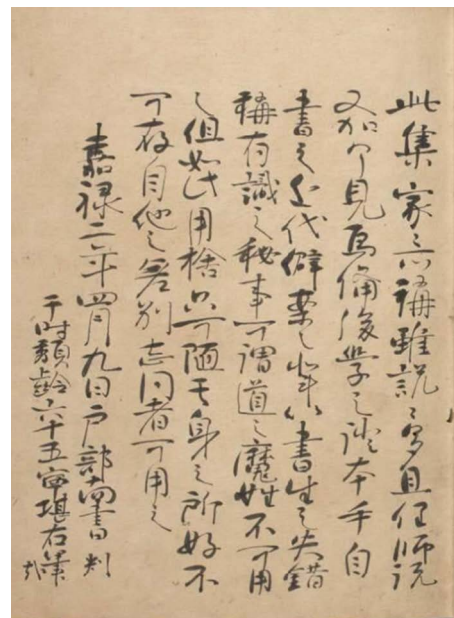 此集家々所稱雖説々多且任師説
又加了見為備後學之證本手自
書之近代僻案之輩以書生之失錯
稱有識之秘事可謂道之魔姓不可用
之但如此用捨只可随其身之所好不
可存自他之差別志同者可用之
嘉禄二年四月九日戸部尚書判
于時頽齡六十五寧堪右筆哉